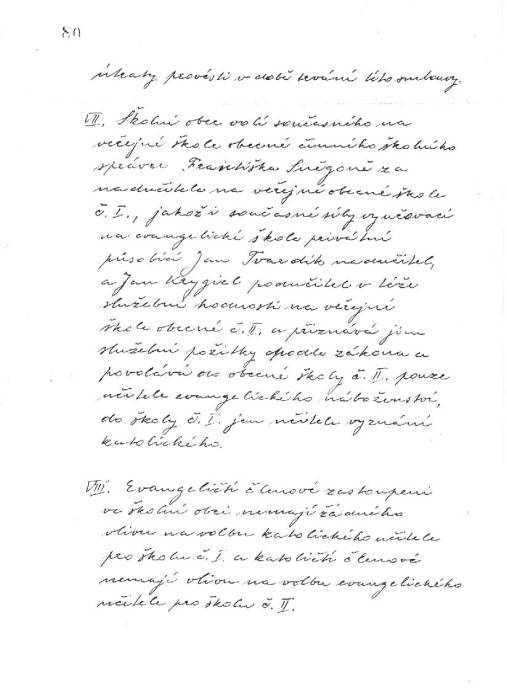 80
útraty provésti v době trvání této smlouvy.
VII. Školní obec volí současného na
veřejné škole obecné činného školního
správce Františka Sněgoně za
nadučitele na veřejné obecné škole
č. I., jakož i současné síly vyučovací
na evangelické škole privátní
působící Jan Tvardik nadučitel,
a Jan Krygiel podučitel v téže
služební hodnosti na veřejné
škole obecné č. II. a přiznává jim
služební požitky podle zákona a
povolává do obecné školy č. II. pouze
učitele evangelického náboženství,
do školy č. I. jen učitele vyznání
katolického.
VIII. Evangeličtí členové zastoupení
ve školní obci nemají žádného
vlivu na volbu katolického učitele
pro školu č. I. a katoličtí členové
nemají vlivu na volbu evangelického
učitele pro školu č. II.